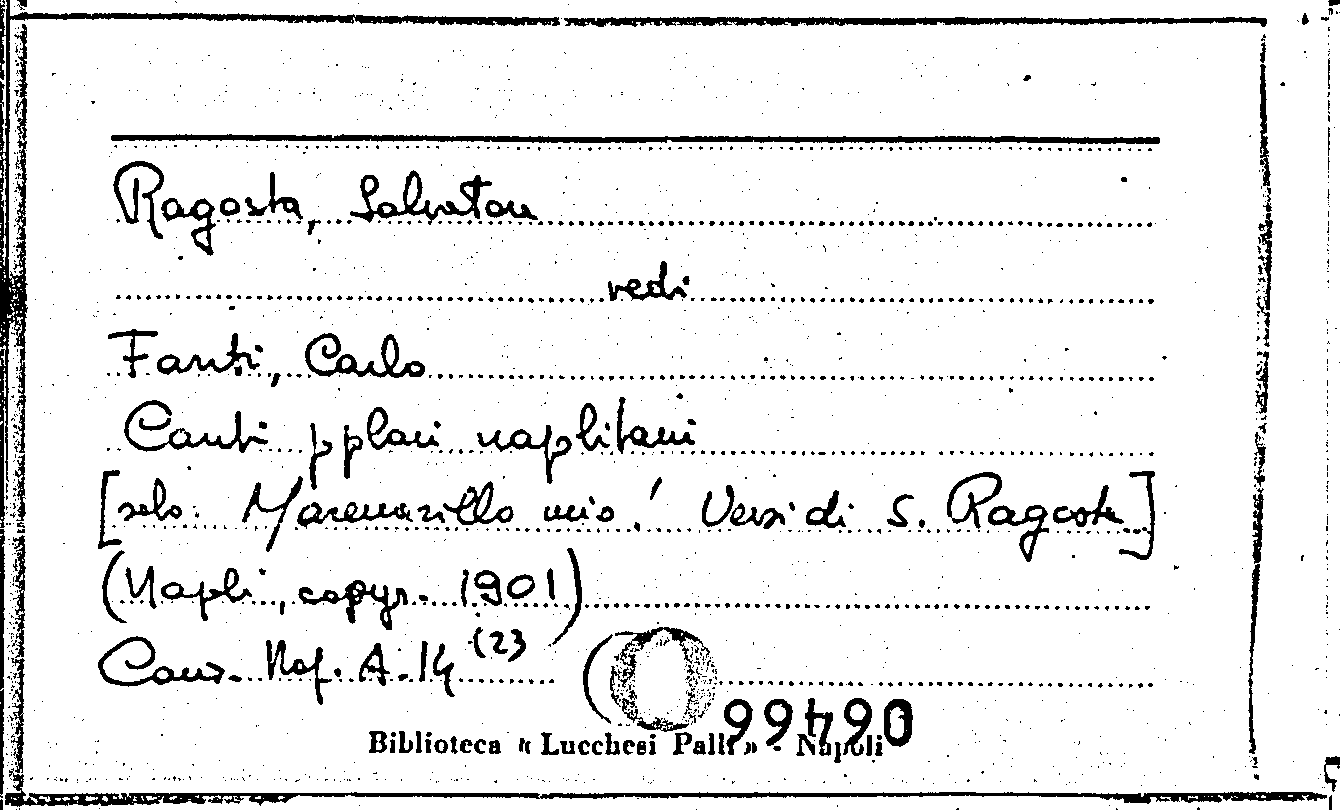 Ragosta, Salvatore
vedi
Fanti, Carlo
Canti popolari napolitani
[solo: Marenarillo mio! Versi di S. Ragosta]
(Napoli, copyr. 1901)
Canz. Nap. A. 14 (23
99490
Biblioteca « Lucchesi Palli » - Napoli